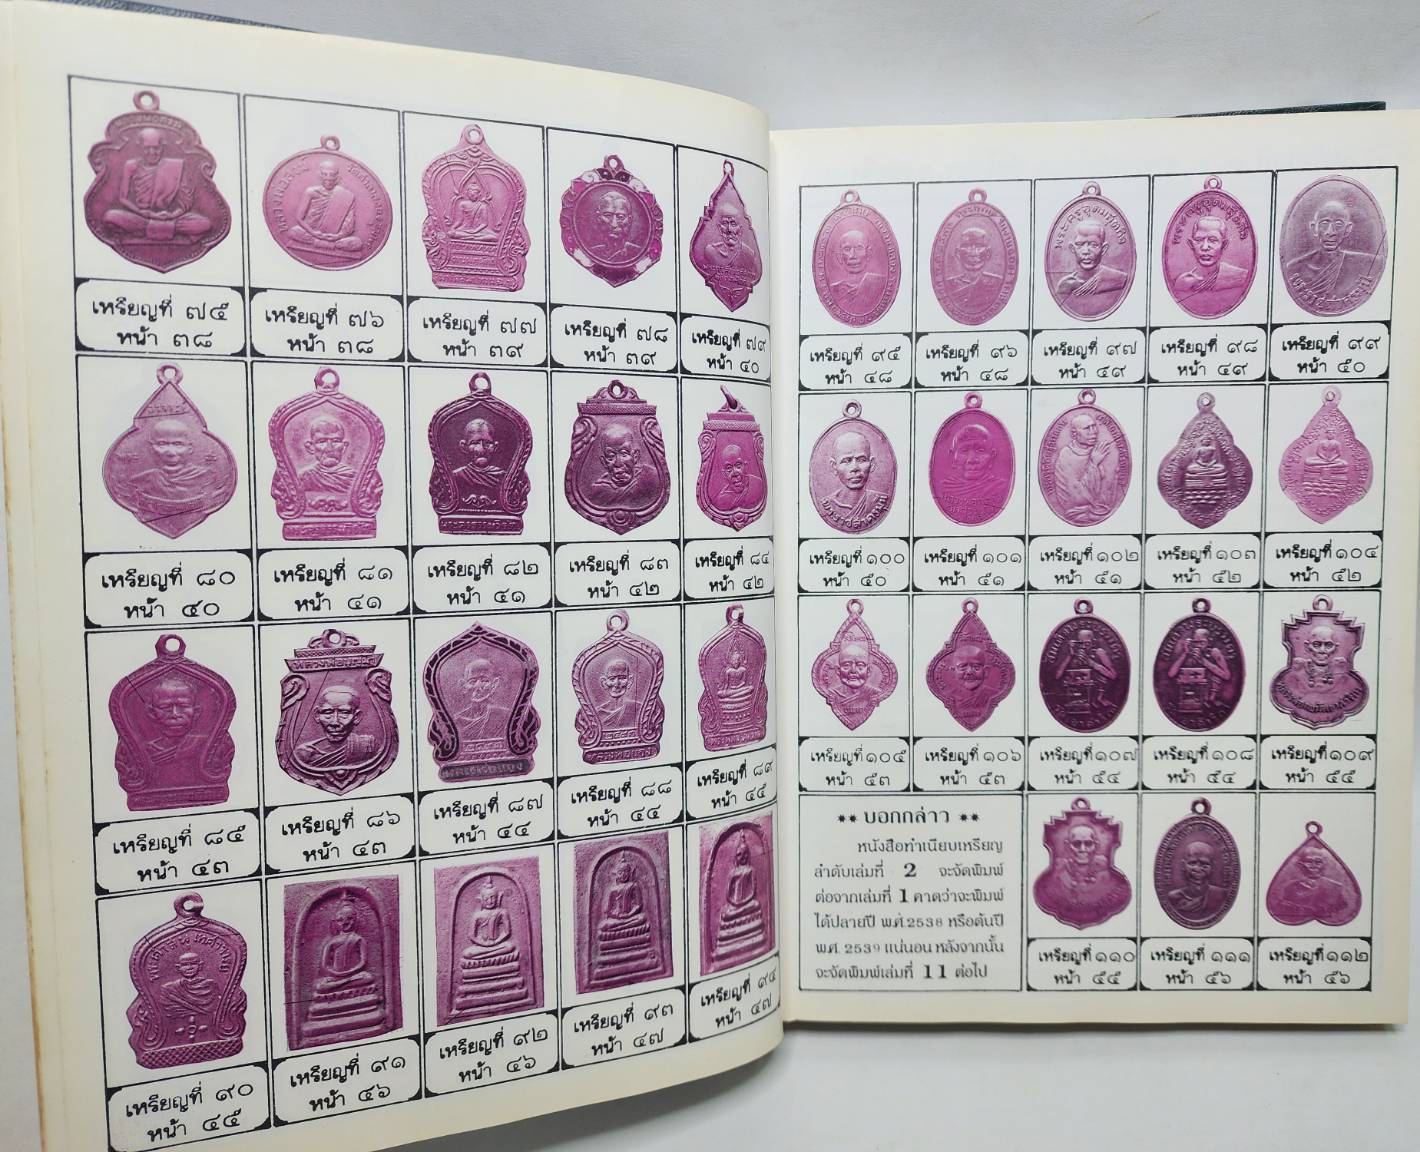 เหรียญที่ ๗๕
หน้า ๓๘
เหรียญที่ ๗๖
หน้า ๓๘
เหรียญที่ ๗๗
หน้า ๓๙
เหรียญที่ ๗๘
หน้า ๓๙
เหรียญที่ ๗๙
หน้า ๔๐
เหรียญที่ ๘๐
หน้า ๔๐
เหรียญที่ ๘๑
หน้า ๔๑
เหรียญที่ ๘๒
หน้า ๔๑
เหรียญที่ ๘๓
หน้า ๔๒
เหรียญที่ ๘๔
หน้า ๔๒
เหรียญที่ ๘๕
หน้า ๔๓
เหรียญที่ ๘๖
หน้า ๔๓
เหรียญที่ ๘๗
หน้า ๔๔
เหรียญที่ ๘๘
หน้า ๔๔
เหรียญที่ ๘๙
หน้า ๔๕
เหรียญที่ ๙๐
หน้า ๔๕
เหรียญที่ ๙๑
หน้า ๔๖
เหรียญที่ ๙๒
หน้า ๔๖
เหรียญที่ ๙๓
หน้า ๔๗
เหรียญที่ ๙๔
หน้า ๔๗
เหรียญที่ ๙๕
หน้า ๔๘
เหรียญที่ ๙๖
หน้า ๔๘
พระครูอุดมรังสี
เหรียญที่ ๙๗
หน้า ๔๙
เหรียญที่ ๙๘
หน้า ๔๙
เหรียญที่ ๙๙
หน้า ๕๐
เหรียญที่ ๑๐๐
หน้า ๕๐
เหรียญที่ ๑๐๑
หน้า ๕๑
เหรียญที่ ๑๐๒
หน้า ๕๑
เหรียญที่ ๑๐๓
หน้า ๕๒
เหรียญที่ ๑๐๔
หน้า ๕๒
เหรียญที่ ๑๐๕
หน้า ๕๓
เหรียญที่ ๑๐๖
หน้า ๕๓
เหรียญที่ ๑๐๗
หน้า ๕๔
เหรียญที่ ๑๐๘
หน้า ๕๔
เหรียญที่ ๑๐๙
หน้า ๕๕
** บอกกล่าว **
หนังสือทำเนียบเหรียญ
ลำดับเล่มที่ 2 จะจัดพิมพ์
ต่อจากเล่มที่ 1 คาดว่าจะพิมพ์
ได้ปลายปี พ.ศ.2538 หรือต้นปี
พ.ศ. 2539 แน่นอน หลังจากนั้น
จะจัดพิมพ์เล่มที่ 11 ต่อไป
เหรียญที่ ๑๑๐
หน้า ๕๕
เหรียญที่ ๑๑๑
หน้า ๕๖
เหรียญที่ ๑๑๒
หน้า ๕๖